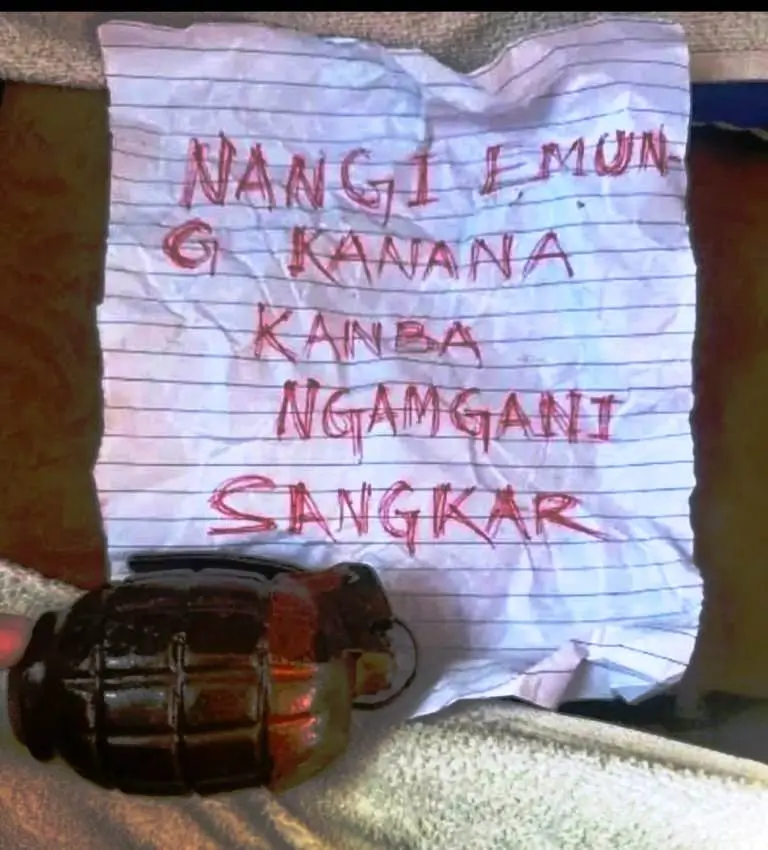 NANGI EMUN-
G KANANA
KANBA
NGAMGANI
SANGKAR